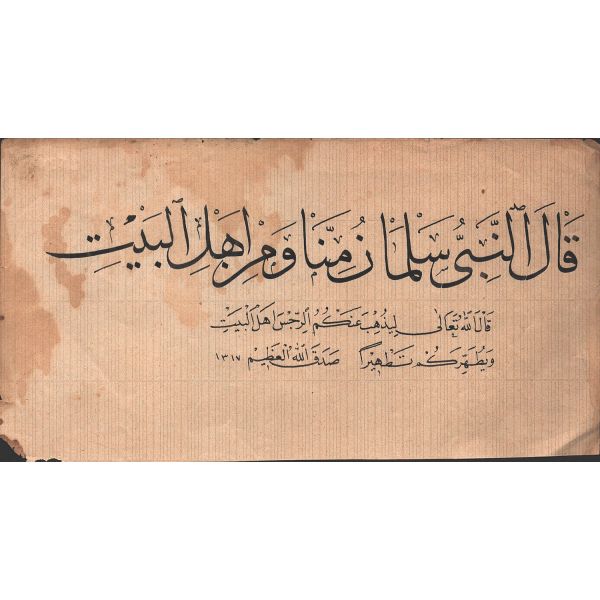 قَالَ النَّبِىُّ سَلْمَانُ مِنَّا وَمِنْ اَهْلِ الْبَيْتِ
قَالَ اللهُ تَعَالَى لِيُذْهِبَ عَنْكُمُ الرِّجْسَ اَهْلَ الْبَيْتِ
وَيُطَهِّرَكُمْ تَطْهِيرًا صَدَقَ اللهُ الْعَظِيمُ ١٣١٧